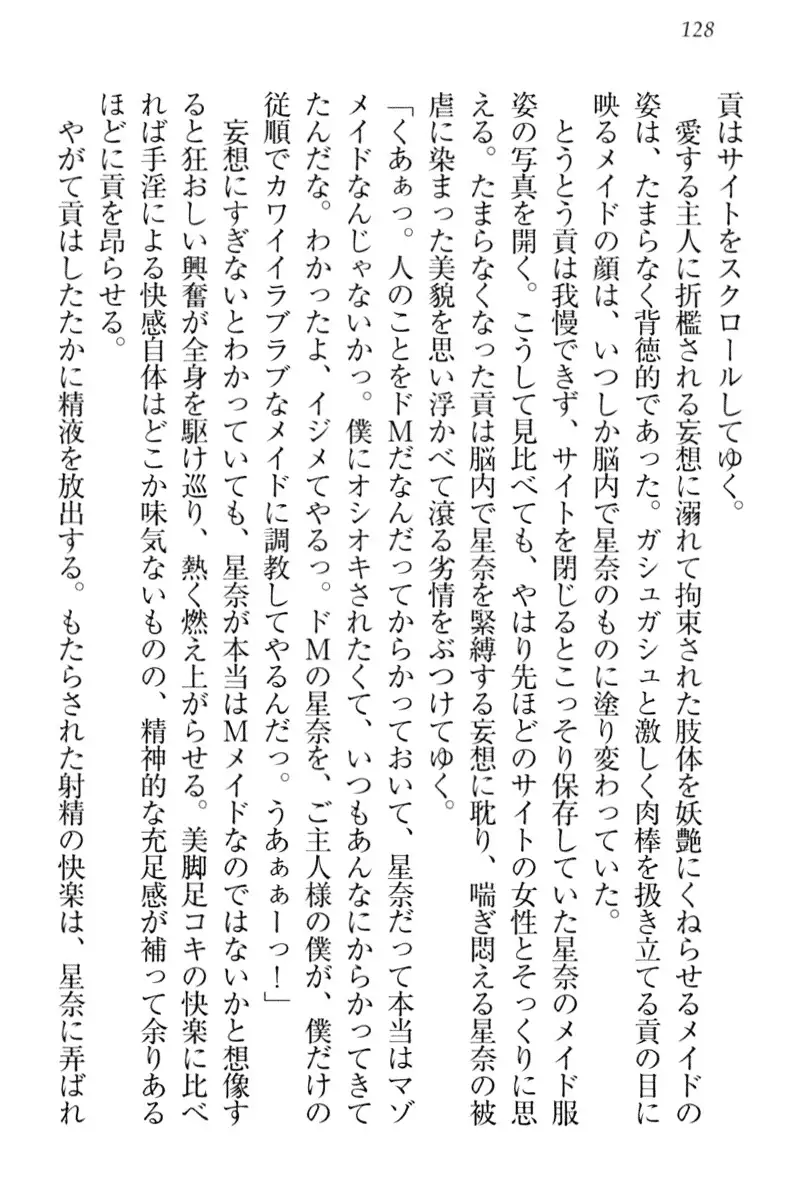 128
貢はサイトをスクロールしてゆく。
愛する主人に折檻される妄想に溺れて拘束された肢体を妖艶にくねらせるメイドの
姿は、たまらなく背徳的であった。ガシュガシュと激しく肉棒を扱き立てる貢の目に
映るメイドの顔は、いつしか脳内で星奈のものに塗り変わっていた。
とうとう貢は我慢できず、サイトを閉じるとこっそり保存していた星奈のメイド服
姿の写真を開く。こうして見比べても、やはり先ほどのサイトの女性とそっくりに思
える。たまらなくなった貢は脳内で星奈を緊縛する妄想に耽り、喘ぎ悶える星奈の被
虐に染まった美貌を思い浮かべて滾る劣情をぶつけてゆく。
「くあぁっ。人のことをドMだなんだってからかっておいて、星奈だって本当はマゾ
メイドなんじゃないかっ。僕にオシオキされたくて、いつもあんなにからかってきて
たんだな。わかったよ、イジメてやるっ。ドMの星奈を、ご主人様の僕が、僕だけの
従順でカワイイラブラブなメイドに調教してやるんだっ。うあぁぁーっ！」
妄想にすぎないとわかっていても、星奈が本当はMメイドなのではないかと想像す
ると狂おしい興奮が全身を駆け巡り、熱く燃え上がらせる。美脚足コキの快楽に比べ
れば手淫による快感自体はどこか味気ないものの、精神的な充足感が補って余りある
ほどに貢を昂らせる。
やがて貢はしたたかに精液を放出する。もたらされた射精の快楽は、星奈に弄ばれ